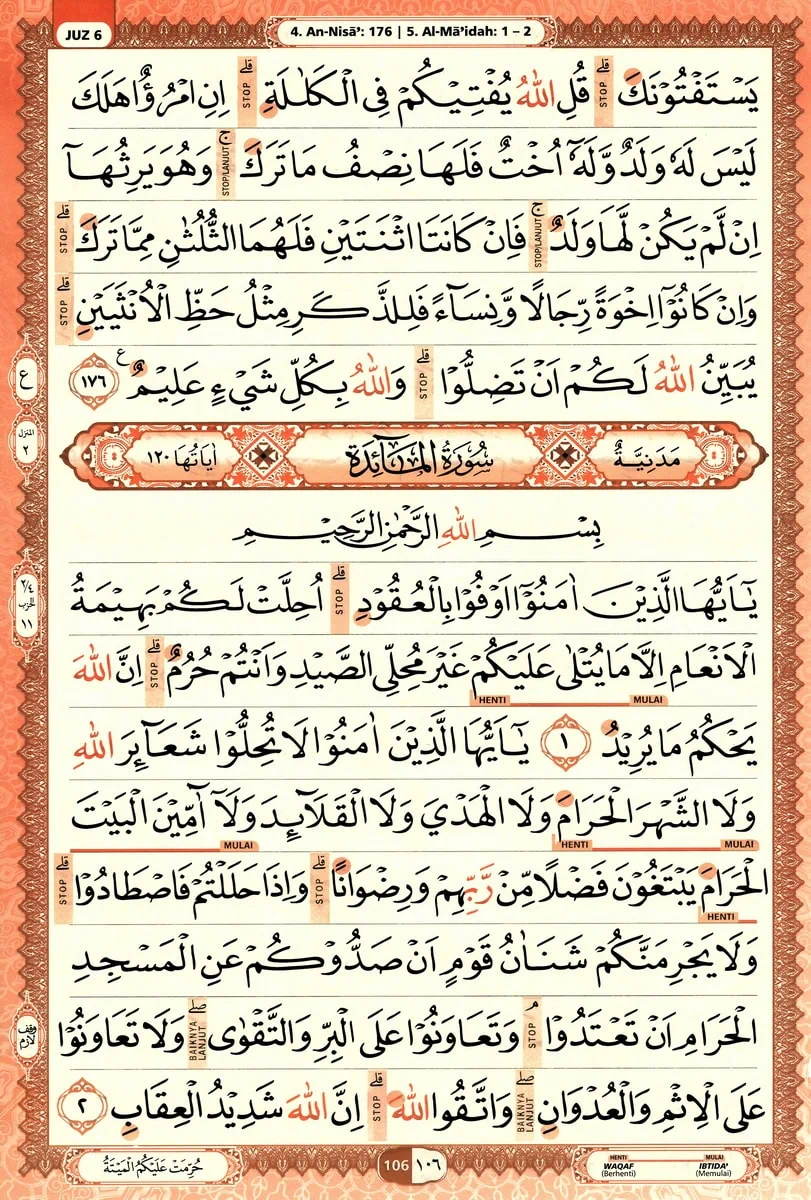 JUZ 6
4. An-Nisā’: 176 | 5. Al-Mā’idah: 1 – 2
يَسْتَفْتُوْنَكَۗ STOP قُلِ اللّٰهُ يُفْتِيْكُمْ فِى الْكَلٰلَةِۗ STOP اِنِ امْرُؤٌا هَلَكَ
لَيْسَ لَهٗ وَلَدٌ وَّلَهٗٓ اُخْتٌ فَلَهَا نِصْفُ مَا تَرَكَۚ STOP/LANJUT وَهُوَ يَرِثُهَآ
اِنْ لَّمْ يَكُنْ لَّهَا وَلَدٌۚ STOP/LANJUT فَاِنْ كَانَتَا اثْنَتَيْنِ فَلَهُمَا الثُّلُثٰنِ مِمَّا تَرَكَۗ STOP
وَاِنْ كَانُوْٓا اِخْوَةً رِّجَالًا وَّنِسَاۤءً فَلِلذَّكَرِ مِثْلُ حَظِّ الْاُنْثَيَيْنِۗ STOP
يُبَيِّنُ اللّٰهُ لَكُمْ اَنْ تَضِلُّوْاۗ STOP وَاللّٰهُ بِكُلِّ شَيْءٍ عَلِيْمٌ ࣖ ١٧٦
ع
المنزل
٢
مَدَنِيَّةٌ سُوْرَةُ الْمَاۤئِدَةِ اٰيَاتُهَا ١٢٠
بِسْمِ اللّٰهِ الرَّحْمٰنِ الرَّحِيْمِ
٢/٤
الحزب
١١
يٰٓاَيُّهَا الَّذِيْنَ اٰمَنُوْٓا اَوْفُوْا بِالْعُقُوْدِۗ STOP اُحِلَّتْ لَكُمْ بَهِيْمَةُ
الْاَنْعَامِ اِلَّا مَا يُتْلٰى عَلَيْكُمْ غَيْرَ مُحِلِّى الصَّيْدِ وَاَنْتُمْ حُرُمٌۗ STOP اِنَّ اللّٰهَ
HENTI MULAI
يَحْكُمُ مَا يُرِيْدُ ١ يٰٓاَيُّهَا الَّذِيْنَ اٰمَنُوْا لَا تُحِلُّوْا شَعَاۤىِٕرَ اللّٰهِ
وَلَا الشَّهْرَ الْحَرَامَ وَلَا الْهَدْيَ وَلَا الْقَلَاۤىِٕدَ وَلَآ اٰۤمِّيْنَ الْبَيْتَ
MULAI HENTI MULAI
الْحَرَامَ يَبْتَغُوْنَ فَضْلًا مِّنْ رَّبِّهِمْ وَرِضْوَانًاۗ STOP وَاِذَا حَلَلْتُمْ فَاصْطَادُوْاۗ STOP
HENTI
وَلَا يَجْرِمَنَّكُمْ شَنَاٰنُ قَوْمٍ اَنْ صَدُّوْكُمْ عَنِ الْمَسْجِدِ
الْحَرَامِ اَنْ تَعْتَدُوْاۘ STOP وَتَعَاوَنُوْا عَلَى الْبِرِّ وَالتَّقْوٰىۖ BAIKNYA LANJUT وَلَا تَعَاوَنُوْا
وقف
لازم
عَلَى الْاِثْمِ وَالْعُدْوَانِۖ BAIKNYA LANJUT وَاتَّقُوا اللّٰهَۗ STOP اِنَّ اللّٰهَ شَدِيْدُ الْعِقَابِ ٢
حُرِّمَتْ عَلَيْكُمُ الْمَيْتَةُ
106 ١٠٦
HENTI MULAI
WAQAF IBTIDA'
(Berhenti) (Memulai)